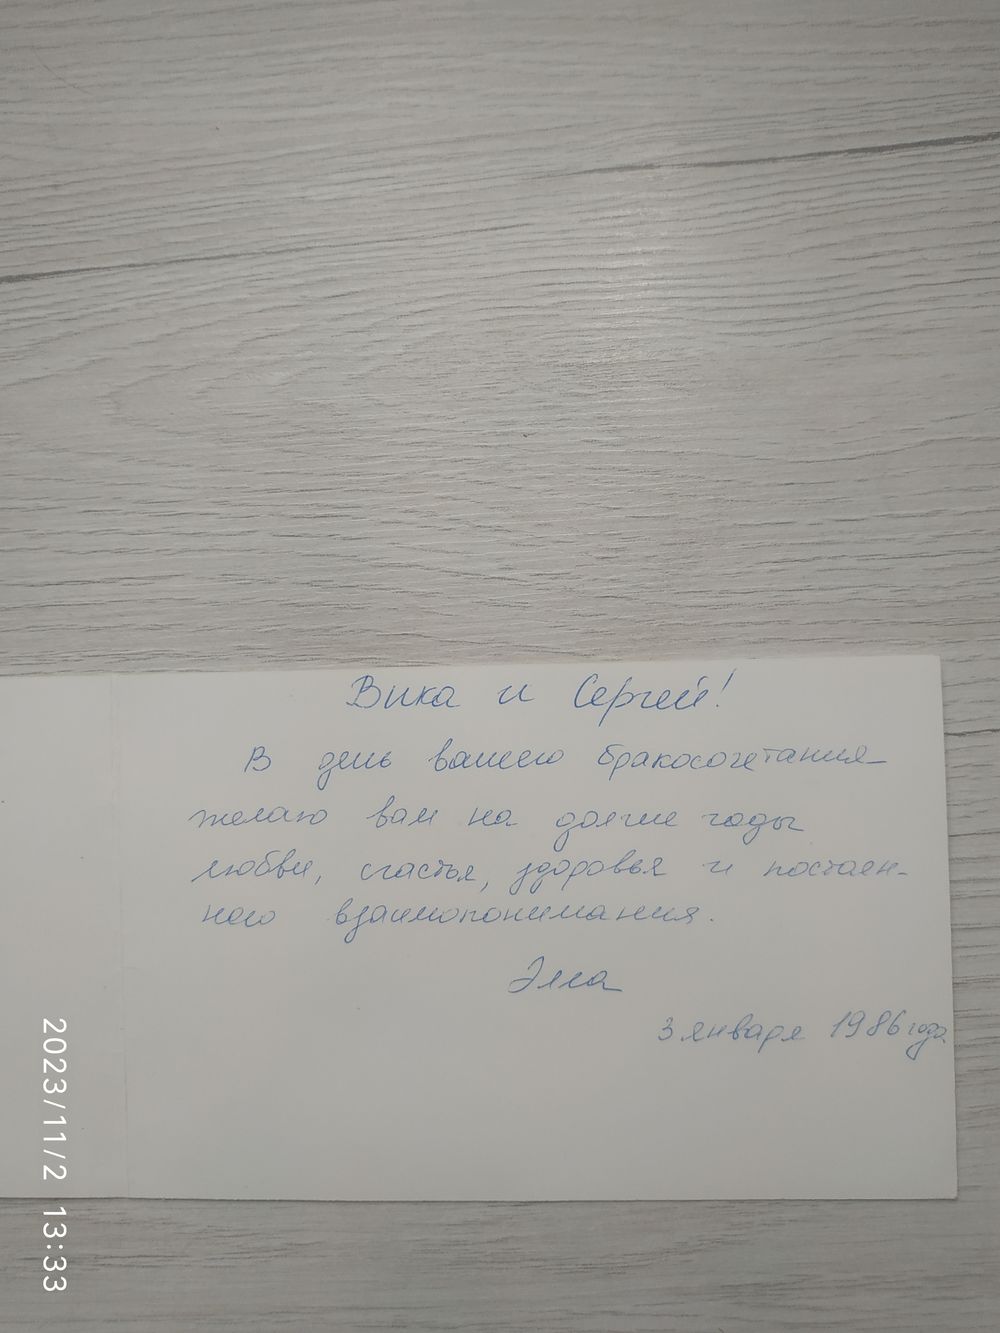 Вика и Сергей!
В день вашего бракосочетания
желаю вам на долгие годы
любви, счастья, здоровья и постоян-
ного взаимопонимания.
Элла
3 января 1986 года
2023/11/2 13:33